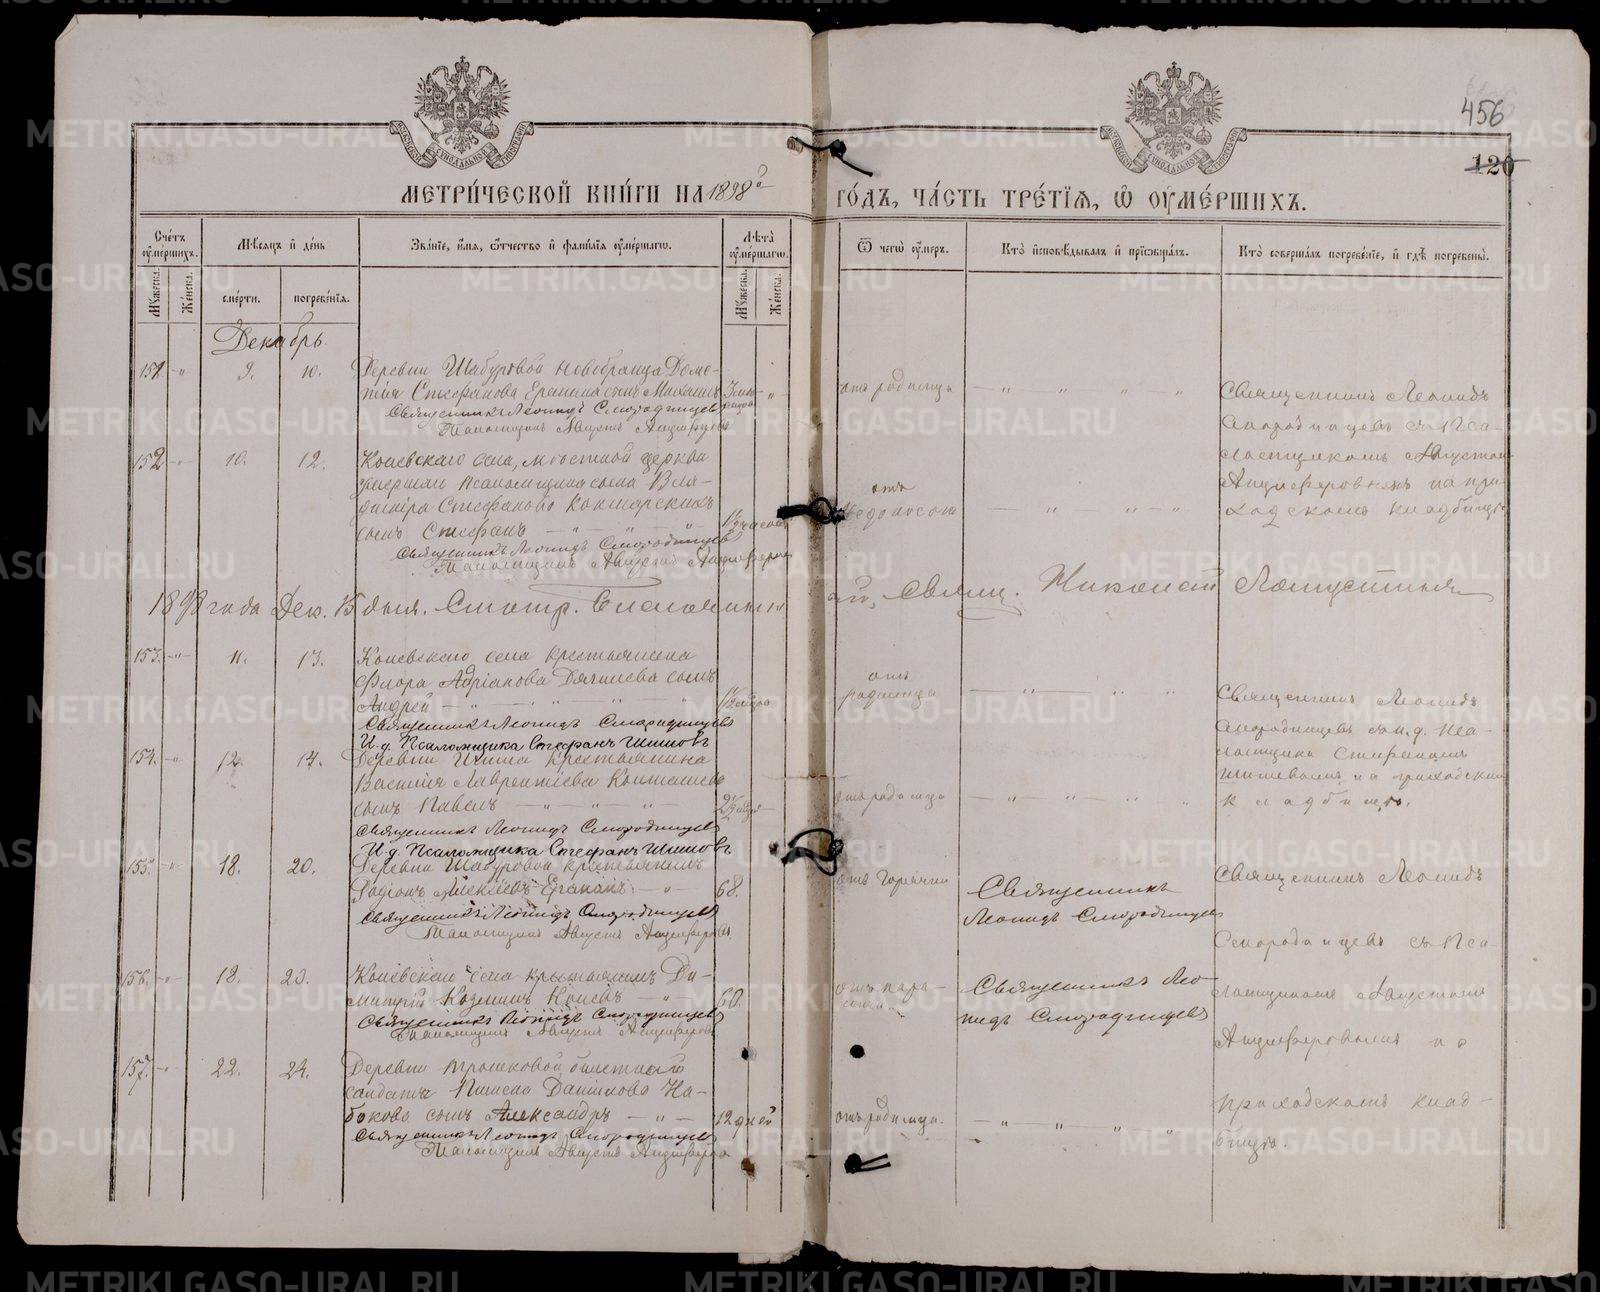 456
120
МЕТРИ́ЧЕСКОЙ КНИ́ГИ НА 1898й ГО́ДЪ, ЧА́СТЬ ТРЕ́ТІѦ, Ѽ ОУМЕ́РШИХЪ.
Сче́тъ оумершихъ.
Мѣсяцъ и де́нь
Зва́ніе, и́мя, о́тчество и фами́лія оуме́ршагѡ.
Лѣта̀ оуме́ршагѡ.
Ѿ чегѡ̀ оу́меръ.
Кто̀ исповѣ́дывалъ и прїѡбща́лъ.
Кто̀ соверша́лъ погребе́ніе, и гдѣ̀ погребены̀.
Мꙋжеска.
Же́нска.
сме́рти.
погребе́нїѧ.
Мꙋжеска.
Же́нска.
Декабрь
151. 9. 10. Деревни Шабуровой новобранца Доме-
тія Стефанова сынъ Михаилъ 3 ме-
Священникъ Леонидъ Смородинцевъ
Псаломщикъ Августъ Анциферовъ
отъ родимца
Священникъ Леонидъ
Смородинцевъ съ Пса-
ломщикомъ Августомъ
Анциферовымъ на при-
ходскомъ кладбищѣ
152 10. 12. Коневскаго села, мѣстной церкви
умершаго псаломщика сына Вла-
диміра Стефанова
сынъ Стефанъ 1½ часов
Священникъ Леонидъ Смородинцевъ
Псаломщикъ Августъ Анциферовъ
отъ
недоноски
1898 года Дек. 15 дня. Смотр. Благочинный, Свящ. Николай
153. 11. 13. Коневскаго села крестьянина
Флора Адріанова сынъ
Андрей
Священникъ Леонидъ Смородинцевъ
И. д. Псаломщика Стефанъ Шишовъ
отъ
родимца
Священникъ Леонидъ
Смородинцевъ съ и. д. Пса-
ломщика Стефаномъ
на приходскомъ
кладбищѣ.
154. 12. 14. Деревни крестьянина
Василія Лаврентіева
сынъ Павелъ
Священникъ Леонидъ Смородинцевъ
И. д. Псаломщика Стефанъ Шишовъ
отъ родимца
155. 18. 20. Деревни Шабуровой крестьянинъ
Родіонъ Алексѣевъ 68.
Священникъ Леонидъ Смородинцевъ
Псаломщикъ Августъ Анциферовъ
отъ горячки
Священникъ
Леонидъ Смородинцевъ
Священникъ Леонидъ
Смородинцевъ съ Пса-
ломщикомъ Августомъ
Анциферовымъ на
приходскомъ клад-
бищѣ.
156. 18. 20. Коневскаго села крестьянинъ Ди-
митрій Козминъ Коневъ 60.
Священникъ Леонидъ Смородинцевъ
Псаломщикъ Августъ Анциферовъ
Священникъ Лео-
нидъ Смородинцевъ
157. 22. 24. Деревни билетнаго
солдата Данилова На-
бокова сынъ Александръ 12 дней
Священникъ Леонидъ Смородинцевъ
Псаломщикъ Августъ Анциферовъ
отъ родимца.